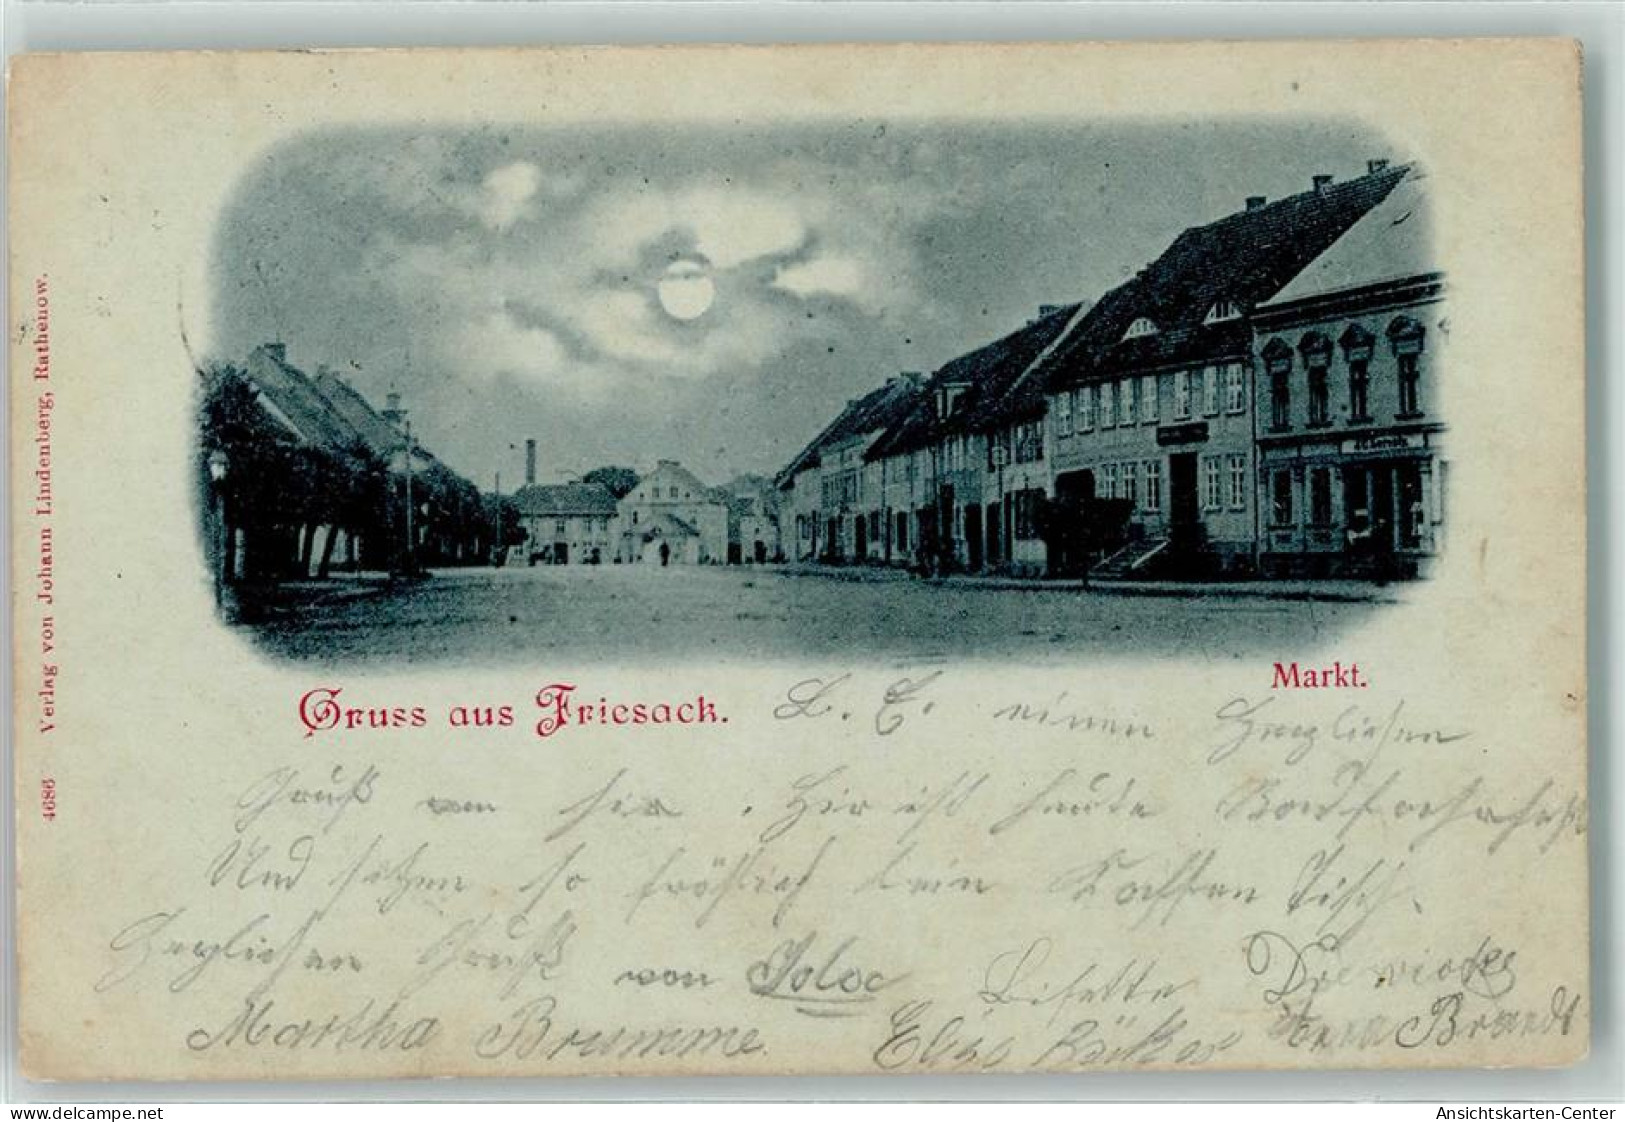 4686 Verlag von Johann Lindenberg, Rathenow.
Markt.
Gruss aus Friesack.
L. E. einen Herzlichen
Gruß von hier. Hir ist heute
Und sitzen so fröhlich beim Kaffeen Tisch.
Herzlichen Gruß von Lisette
Martha Brumme. Elise Brandt
www.delcampe.net
Ansichtskarten-Center